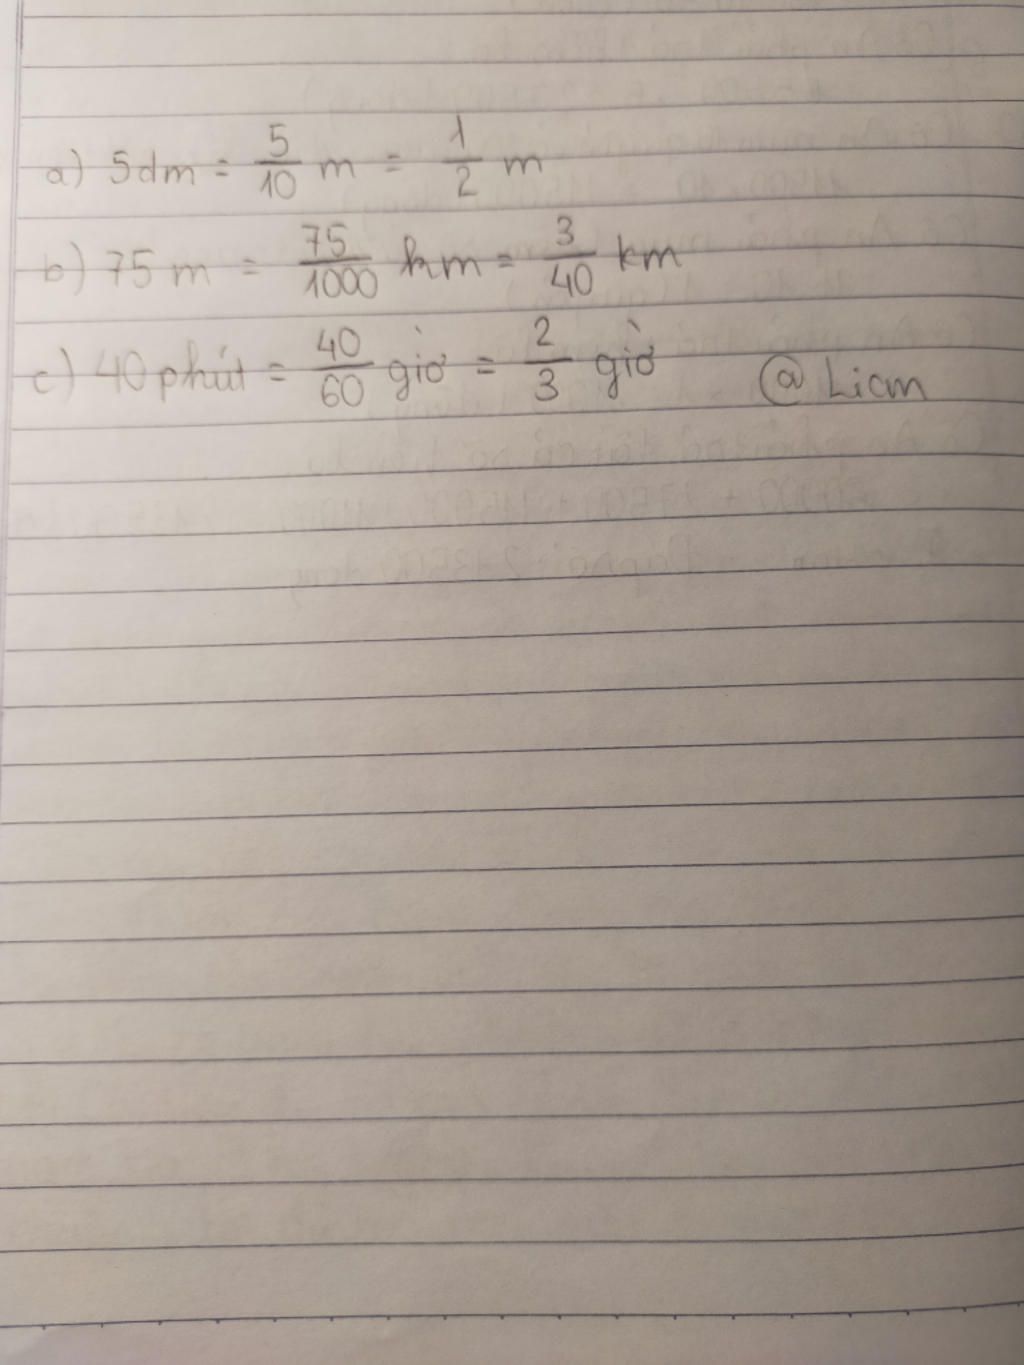 a) 5dm = 5/10 m = 1/2 m
b) 75 m = 75/1000 km = 3/40 km
c) 40 phút = 40/60 giờ = 2/3 giờ @ Liam